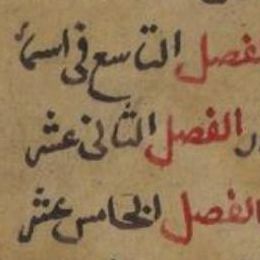 الفصل التاسع في اسماء
الفصل الثاني عشر
الفصل الخامس عشر